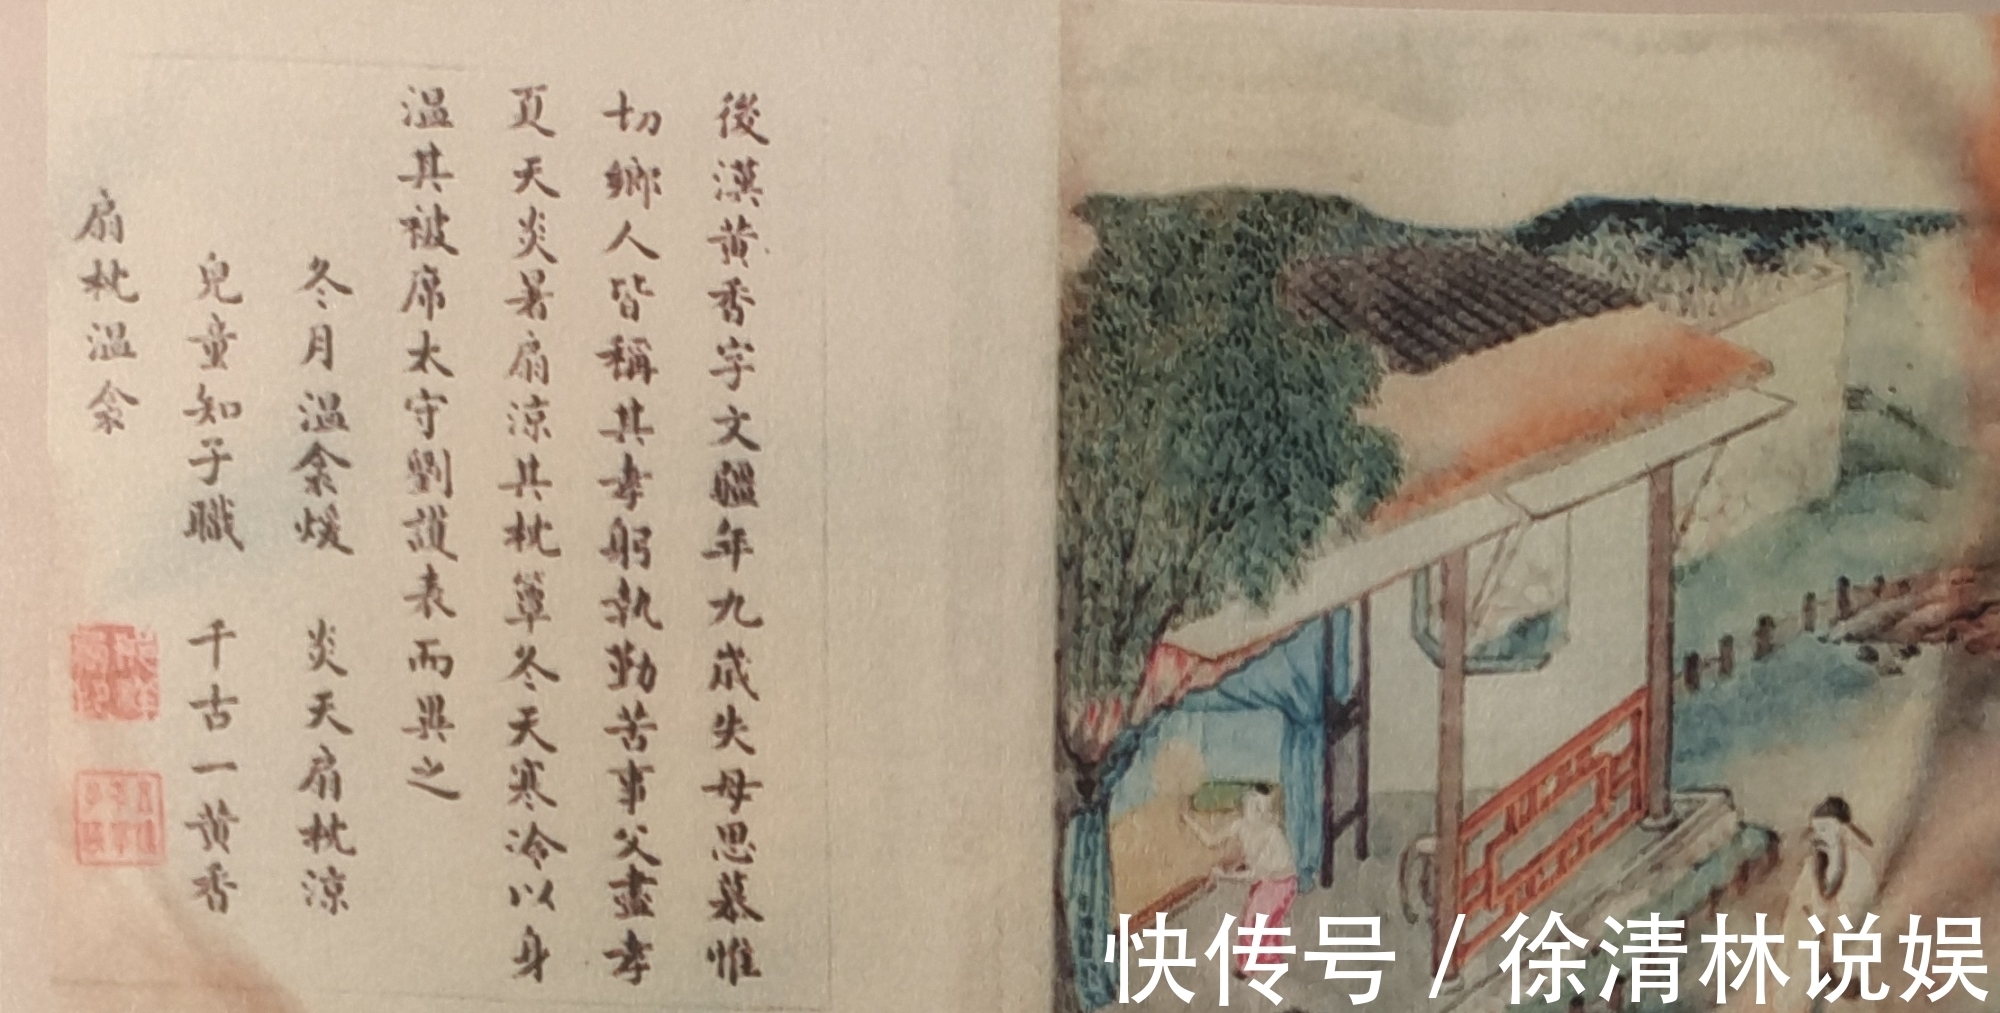 後漢黄香字文疆年九歲失母思慕惟
切鄉人皆稱其孝躬執勤苦事父盡孝
夏天炎暑扇涼其枕簟冬天寒冷以身
溫其被席太守劉護表而異之
冬月溫衾煖 炎天扇枕涼
兒童知子職 千古一黄香
扇枕溫衾
快传号 / 徐清林说娱